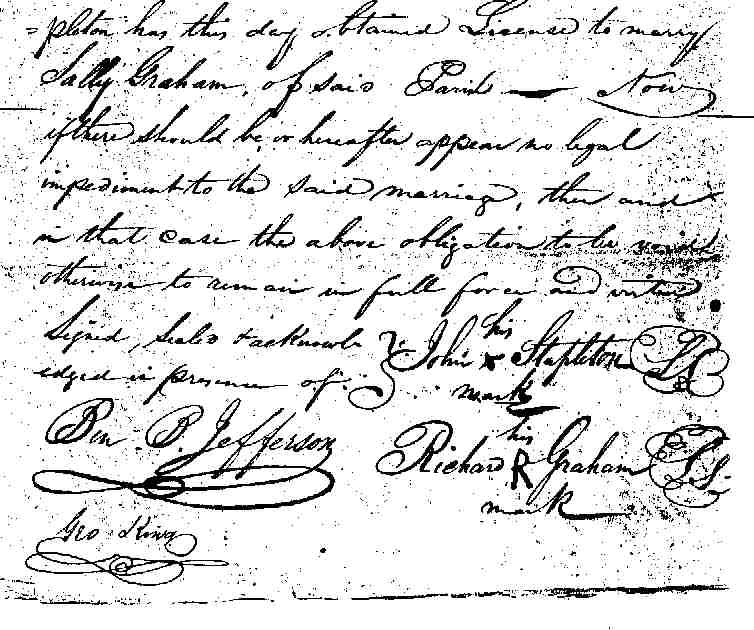 =pleton has this day obtained License to marry
Sally Graham, of said Parish — Now
if there should be, or hereafter appear no legal
impediment to the said marriage, then and
in that case the above obligation to be void
otherwise to remain in full force and virtue
Signed, Sealed & acknowl
edged in presence of
his
John x Stapleton LS
mark
Ben. P. Jefferson
his
Richard R Graham LS.
mark
Geo King